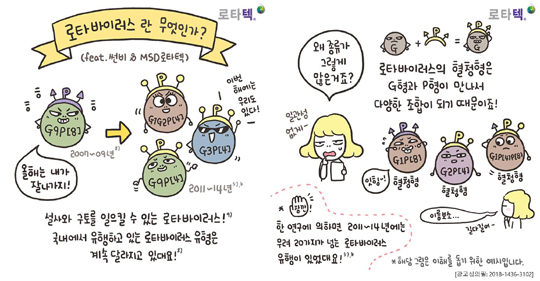 로타텍®
로타바이러스란 무엇인가?
(feat.쎈비 & MSD로타텍)
이번
해에는
우리도
있다!
G9P[8]
G1G2P[4]
G3P[4]
G9P[4]
2007~09년
2011~14년
올해는 내가
잘나가지!
설사와 구토를 일으킬 수 있는 로타바이러스!
국내에서 유행하고 있는 로타바이러스 유형은
계속 달라지고 있대요!
로타텍®
왜 종류가
그렇게
많은거죠?
G + P = G
로타바이러스의 혈청형은
G형과 P형이 만나서
다양한 조합이 되기 때문이죠!
G1P[8]
G2P[4]
혈청형
혈청형
혈청형
한 연구에 의하면 2011~14년에는
무려 20가지가 넘는 로타바이러스
유행이 있었대요!
이름보소...
길다길어~
*해당 그림은 이해를 돕기 위한 예시입니다.
[광고심의필:2018-1436-3102]